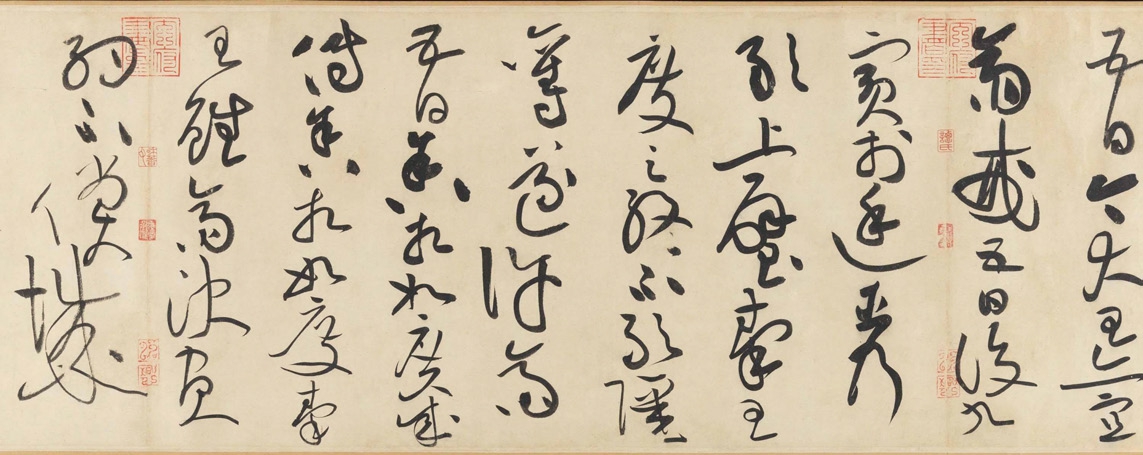 五日今大王亦宜
齋戒五日設九
賓於廷臣乃
敢上璧秦王
度之終不敢彊
奪遂許齋
五日舍相如廣成
傳舍相如度秦
王雖齋決負
約不償城